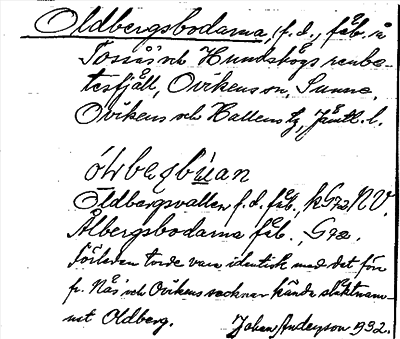 Oldbergsbodarna, (f.d.) fåb. å
Tossås och Hundshögs renbe-
tesfjäll, Ovikens sn, Sunne,
Ovikens och Hallens tg, Jämtl. l.
Oldbergsvallen f.d. fåb., kGra NV.
Ålbergsbodarna fåb., Gra.
Förleden torde vara identisk med det för
fr. Näs och Ovikens socknar kända släktnam-
net Oldberg. Johan Anderson 1932.